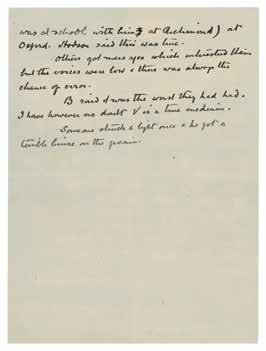 was at school with him at Richmond) at
Oxford. Hodson said this was true.
Others got messages which interested them
but the voices were low & there was always the
chance of error.
B said it was the worst they had had.
I have however no doubt V is a true medium.
Someone struck a light once & he got a
terrible bruise on the